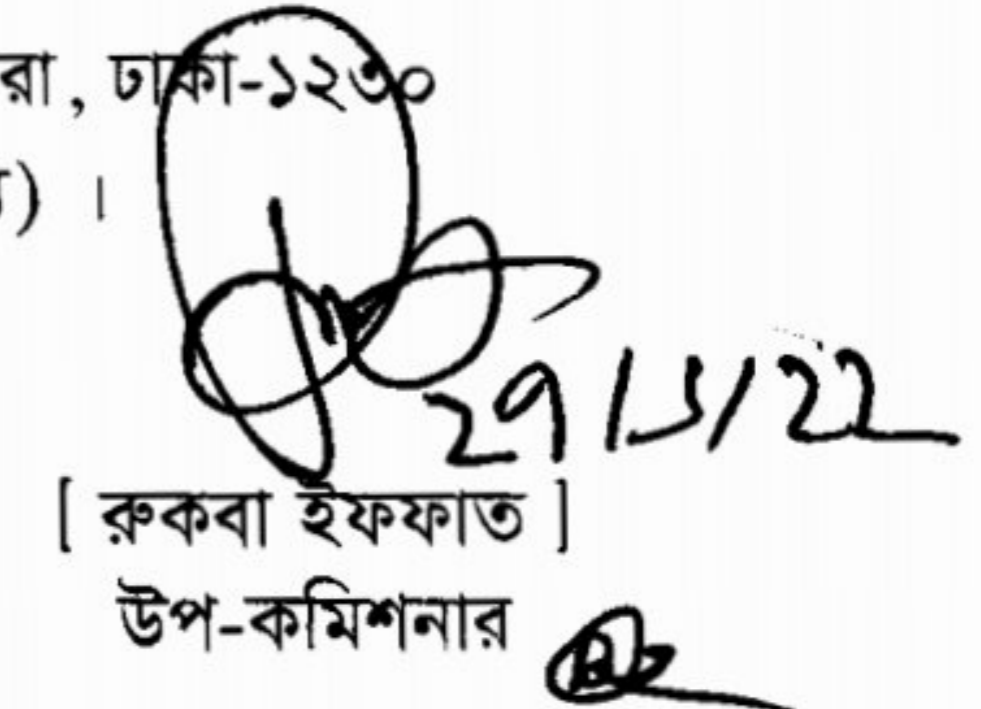 রা, ঢাকা-১২৩০
) ।
[ রুকবা ইফফাত ]
উপ-কমিশনার